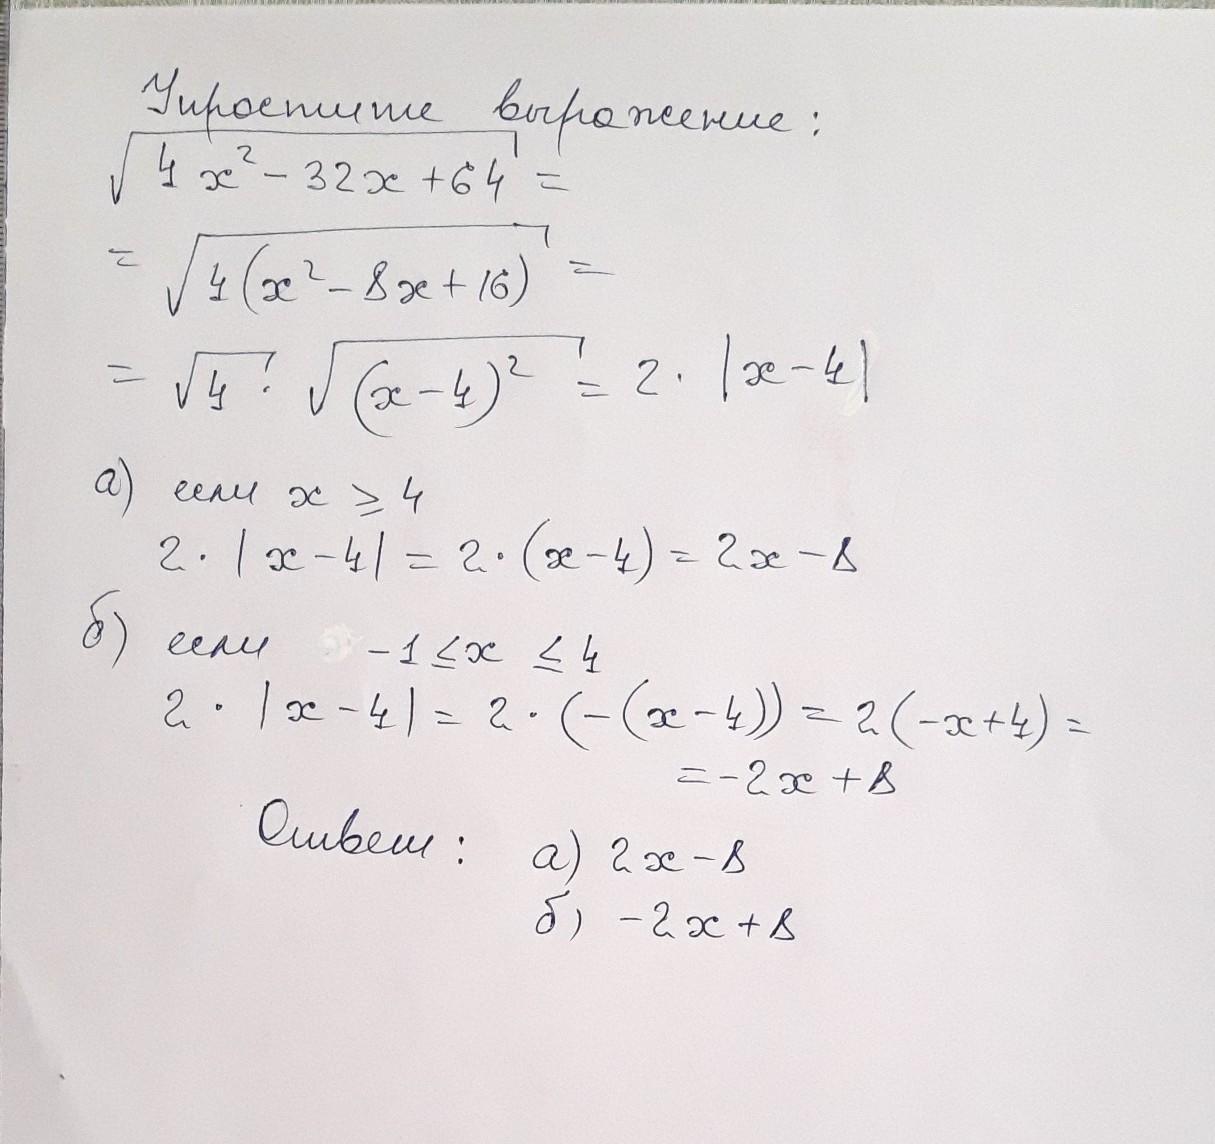 Упростите выражение:
√(4x² - 32x + 64) =
= √(4(x² - 8x + 16)) =
= √4 · √((x - 4)²) = 2 · |x - 4|
а) если x ≥ 4
2 · |x - 4| = 2 · (x - 4) = 2x - 8
б) если -1 ≤ x ≤ 4
2 · |x - 4| = 2 · (-(x - 4)) = 2(-x + 4) =
= -2x + 8
Ответ: а) 2x - 8
б) -2x + 8